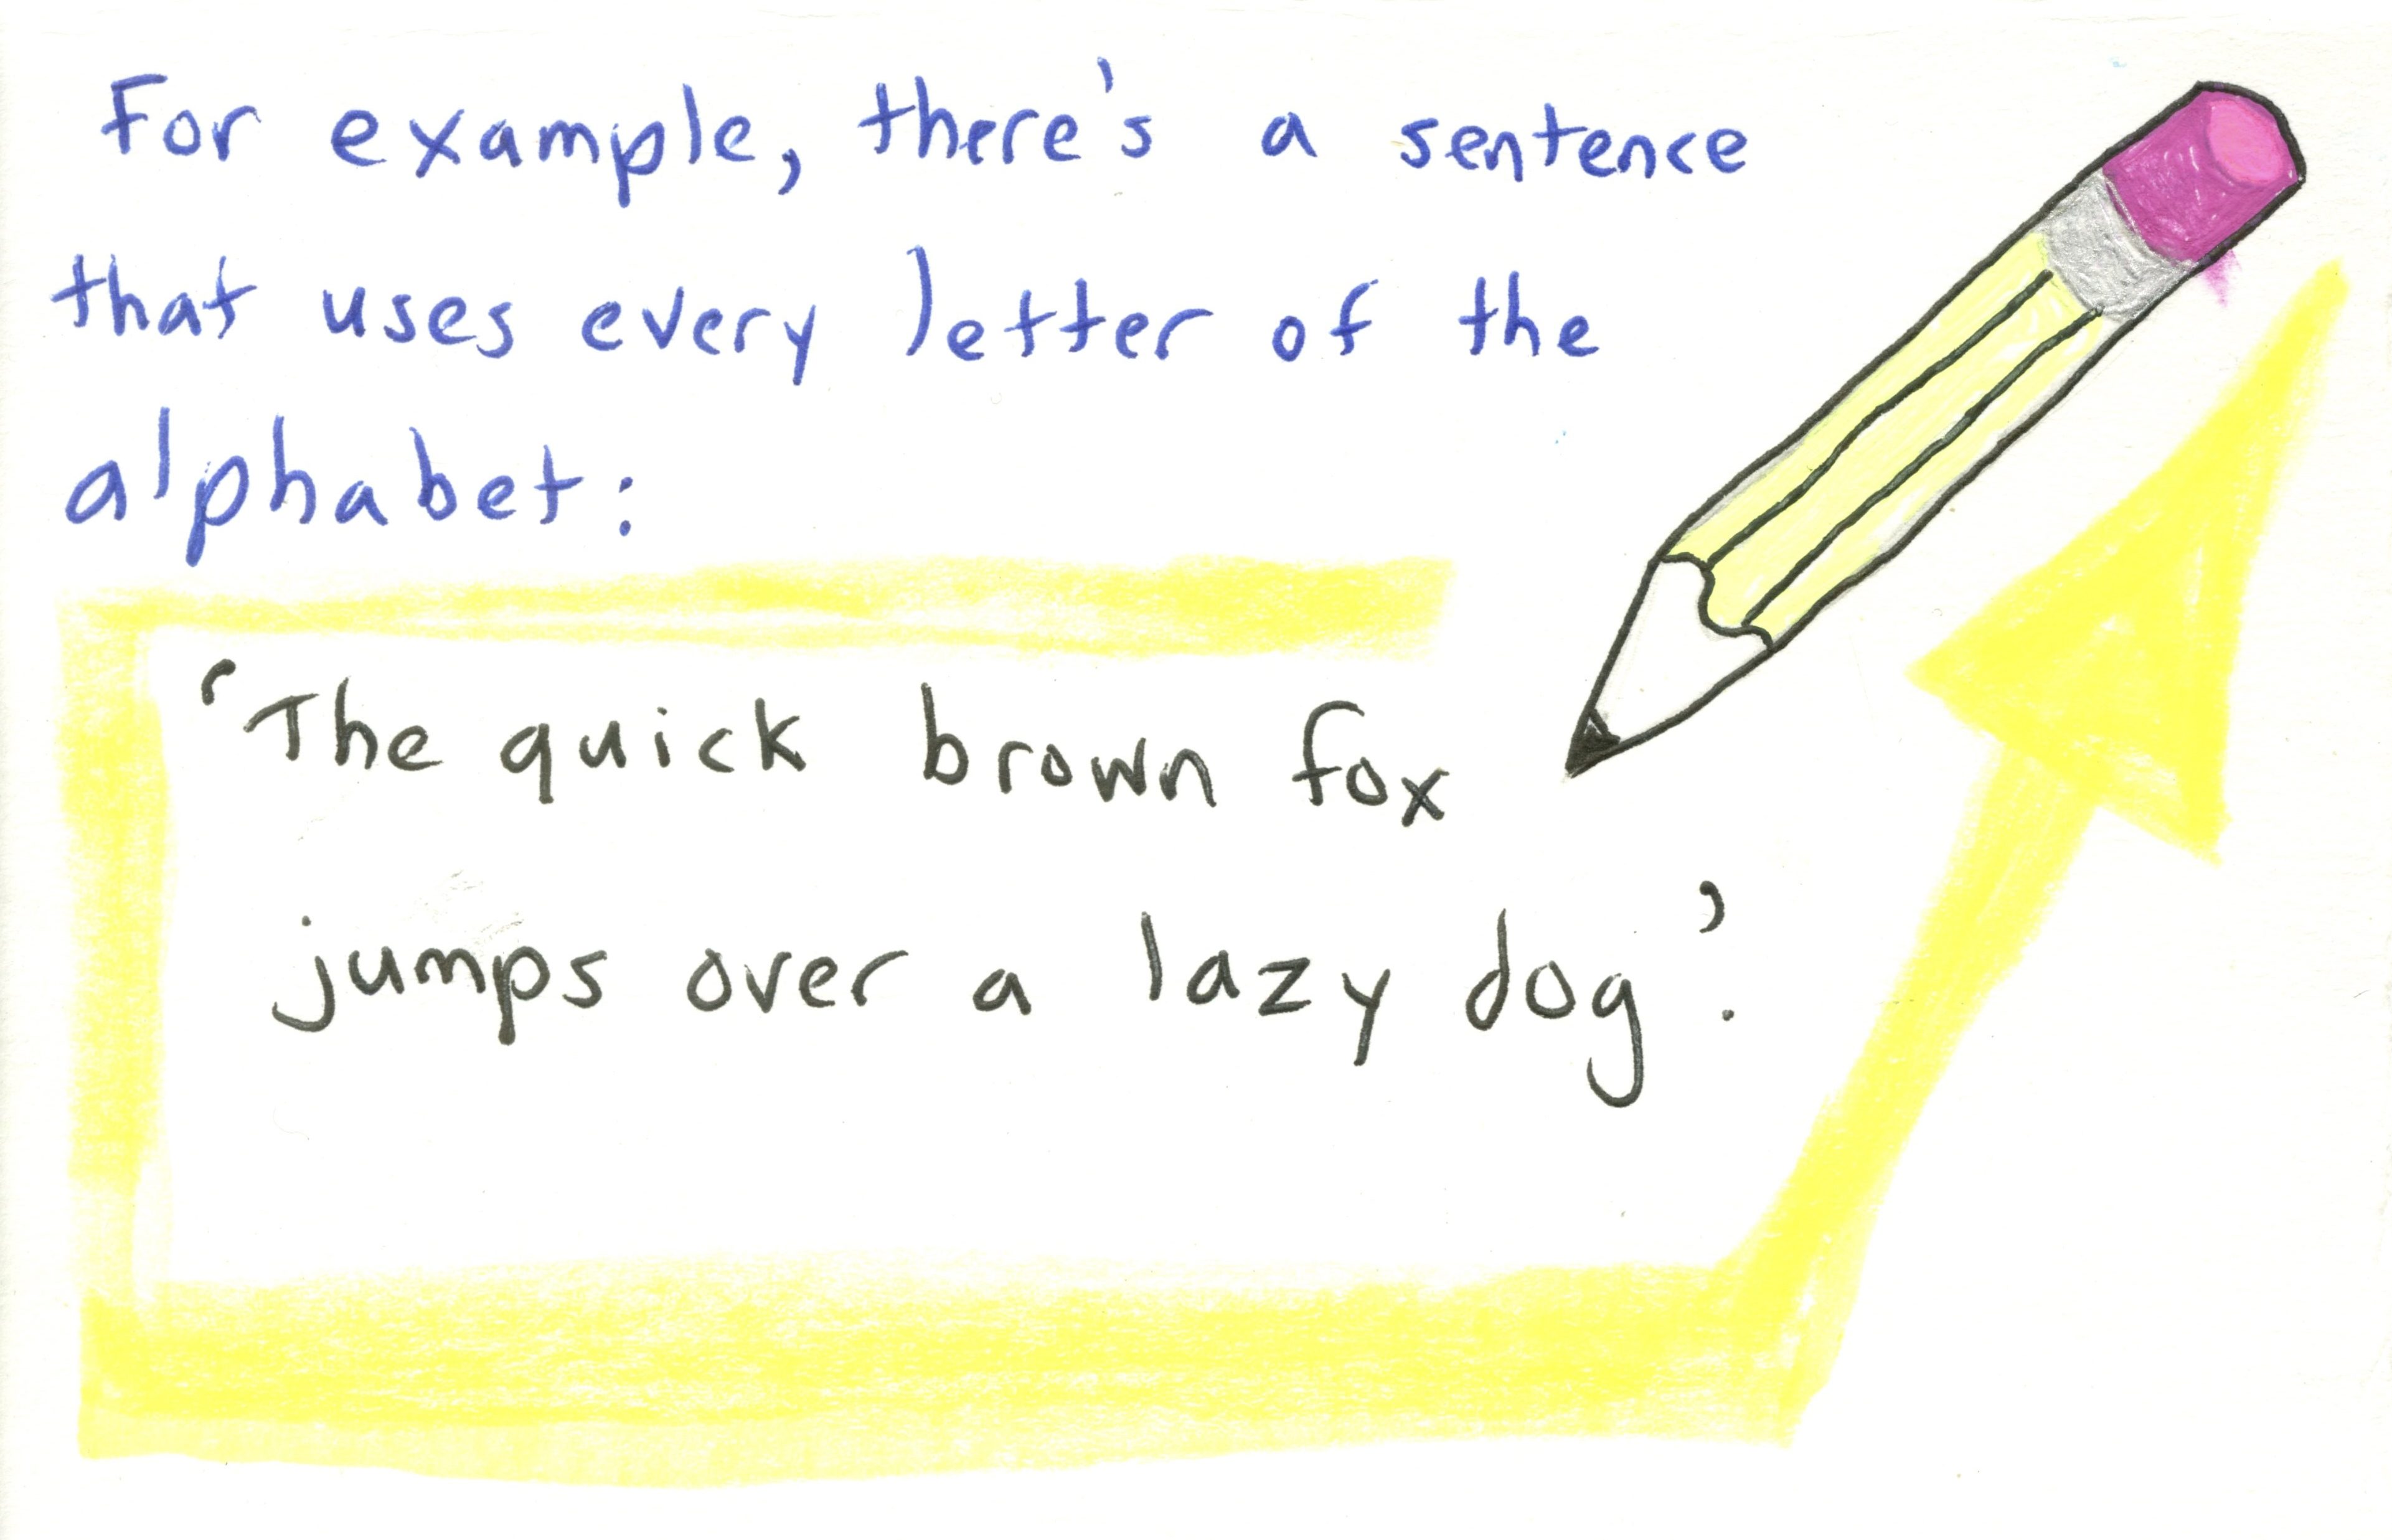 For example, there's a sentence
that uses every letter of the
alphabet:
‘The quick brown fox
jumps over a lazy dog’.